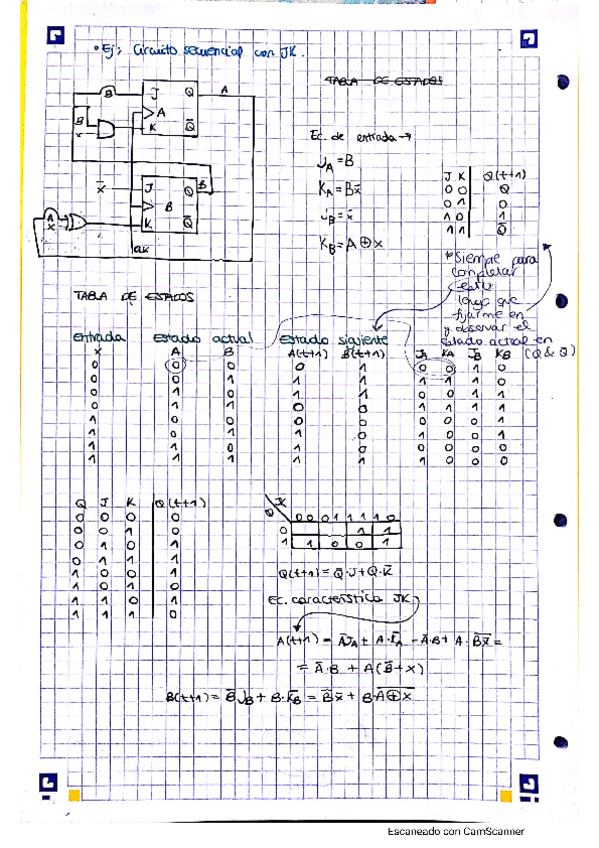 • Ej: Circuito secuencial con JK.
TABLA DE ESTADOS
B J Q A
A
B
x K Q̅
Ec. de entrada →
J_A = B
K_A = Bx̅
J_B = x̅
K_B = A⊕x
J K Q(t+1)
0 0 Q
0 1 0
1 0 1
1 1 Q̅
x̅ J Q B
B
A
x K Q̅
CLK
* Siempre para
completar
esto
tengo que
fijarme en
y observar el
estado actual en
(Q & Q̅)
TABLA DE ESTADOS
entrada Estado actual Estado siguiente
x A B A(t+1) B(t+1) J_A K_A J_B K_B
0 0 0 0 1 0 0 1 0
0 0 1 1 1 1 1 1 0
0 1 0 1 1 0 0 1 1
0 1 1 0 0 1 1 1 1
1 0 0 0 0 0 0 0 1
1 0 1 1 0 1 0 0 1
1 1 0 1 0 0 0 0 0
1 1 1 1 1 1 0 0 0
Q J K Q(t+1)
0 0 0 0
0 0 1 0
0 1 0 1
0 1 1 1
1 0 0 1
1 0 1 0
1 1 0 1
1 1 1 0
JK
Q 00 01 11 10
0 1 1
1 1 0 0 1
Q(t+1) = Q̅·J + Q·K̅
Ec. característica JK
A(t+1) = A̅J_A + A·K̅_A = A̅·B + A·B̅x̅̅ =
= A̅·B + A(B̅+x)
B(t+1) = B̅J_B + B·K̅_B = B̅x̅ + B·A̅⊕̅x̅
Escaneado con CamScanner